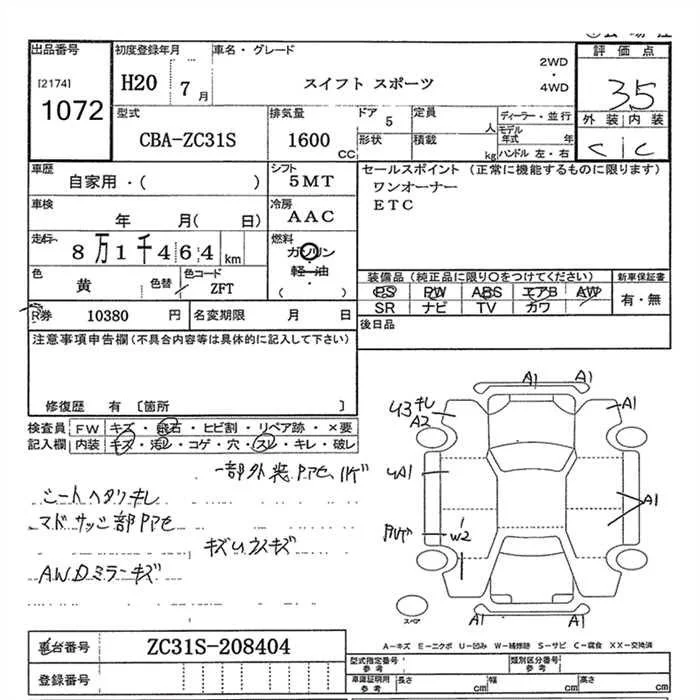 出品番号
初度登録年月
車名・グレード
評価点
[2174]
1072
H20 7月
スイフト スポーツ
2WD
・
4WD
3.5
型式
CBA-ZC31S
排気量
1600 CC
ドア 5
定員 人
ディーラー・並行
モデル年式 年
形状
積載 kg
ハンドル 左・右
外装 内装
C C
車歴
自家用・( )
シフト
5MT
セールスポイント (正常に機能するものに限ります)
ワンオーナー
ETC
車検
年 月( 日)
冷房
AAC
走行
8万1千464 km
燃料
ガソリン
・
軽油
・
( )
色
黄
色替
色コード
ZFT
装備品(純正品に限り○をつけてください)
新車保証書
PS PW ABS エアB AW
SR ナビ TV カワ
有・無
R券 10380 円
名変期限 月 日
後日品
注意事項申告欄(不具合内容等は具体的に記入して下さい)
修復歴 有 [箇所 ]
検査員
記入欄
FW キズ・飛石・ヒビ割・リペア跡・×要
内装 キズ・汚レ・コゲ・穴・スレ・キレ・破レ
シートヘタリキレ
キズウスキズ
A.W.Dミラーキズ
A1 A1
U3 キレ
A2
A1
UA1
A1
W2
スペア
A1 A1
車台番号
ZC31S-208404
A-キズ E-エクボ U-凹み W-補修跡 S-サビ C-腐食 XX-交換済
登録番号
型式指定番号
参考
類別区分番号
参考
車庫証明用
参考
長さ cm
幅 cm
高さ cm